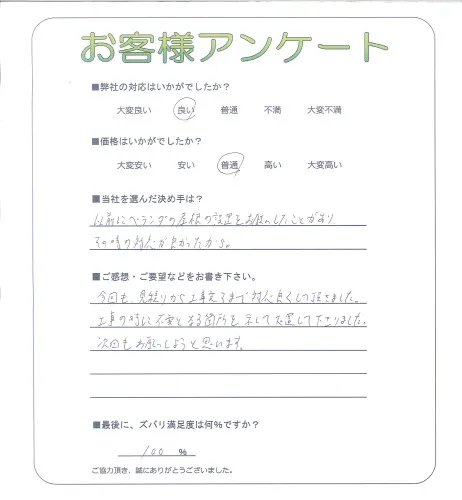 お客様アンケート
■弊社の対応はいかがでしたか?
大変良い 良い 普通 不満 大変不満
■価格はいかがでしたか?
大変安い 安い 普通 高い 大変高い
■当社を選んだ決め手は?
以前にベランダの屋根の設置をお願いしたことがあり
その時の対応が良かったから。
■ご感想・ご要望などをお書き下さい。
今回も、見積りから工事完了まで対応良くして頂きました。
工事の時に不安となる箇所を示して処置して下さりました。
次回もお願いしようと思います。
■最後に、ズバリ満足度は何%ですか?
100 %
ご協力頂き、誠にありがとうございました。